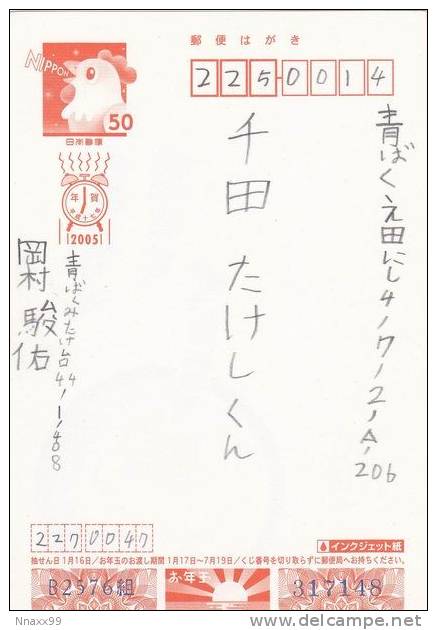 郵便はがき
NIPPON
50
日本郵便
225-0014
青ばくえ田にし4ノ7ノ2ノAノ206
千田 たけしくん
年賀
平成十七年
2005
青ばくみたけ台44ノ1ノ
岡村 駿佑
2270047
インクジェット紙
抽せん日1月16日/お年玉のお渡し期間 1月17日〜7月19日/くじ番号を切り取らずに郵便局へお持ちください。
B2576組
お年玉
317148
Nnaxx99
delcampe.net